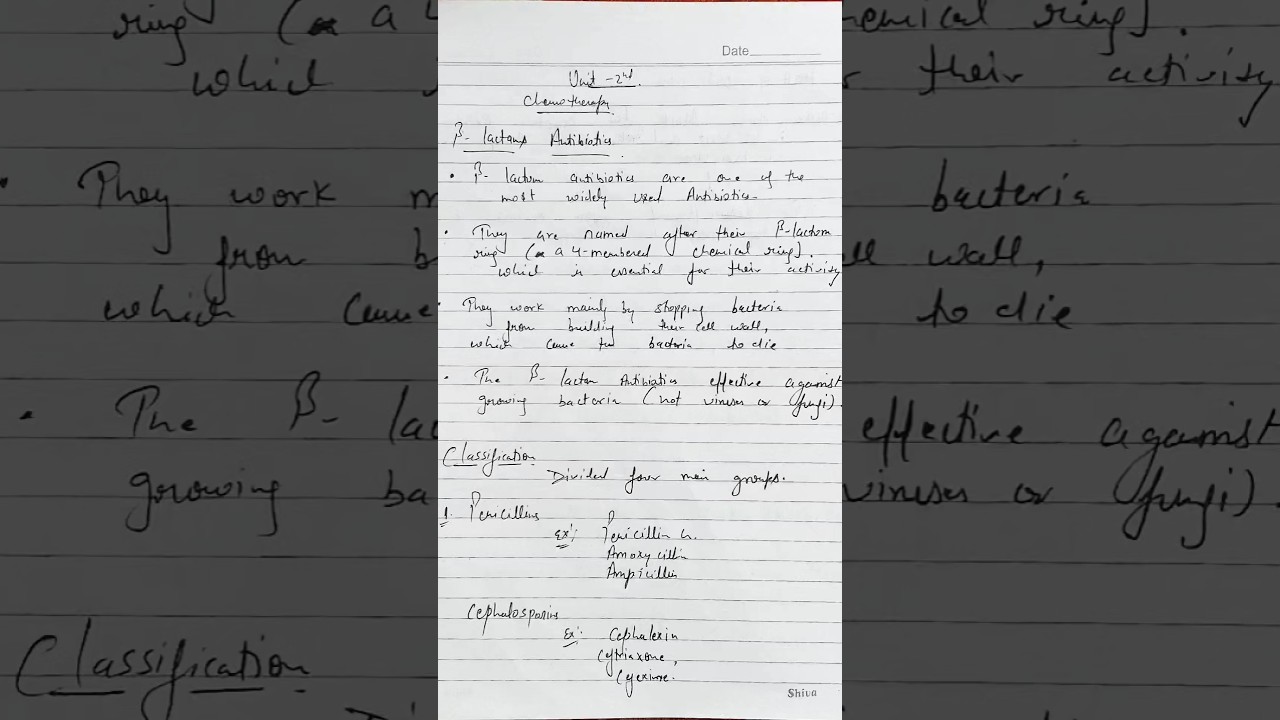 Date
Unit - 2nd.
Chemotherapy
β- lactams Antibiotics.
• β- lactum antibiotics are one of the
most widely used Antibiotics
• They are named after their β-lactam
ring (a 4-membered chemical ring).
which is essential for their activity
• They work mainly by stopping bacteria
from building their cell wall,
which cause the bacteria to die
• The β- lactam Antibiotics effective against
growing bacteria (not viruses or fungi)
Classification
Divided four main groups.
1. Penicillins
Ex:- Penicillin G.
Amoxycillin
Ampicillin
Cephalosporins
Ex:- Cephalexin
Ceftriaxone,
Cefixime.
Shiva